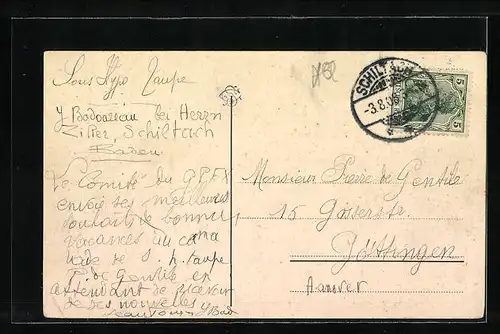 Sous Hypo Taupe
Y Bodoazian bei Herrn
Zilter, Schiltach
Baden
Le Comité du GPFX
envoie ses meilleures
souhaits de bonnes
vacances au cama
rade de S. h. taupe
P. de Gentile en
attendant de recevoir
de ses nouvelles
SCHILTACH
-3.8.0
5
5
Monsieur Pierre de Gentile
15 Gosslerstr.
Göttingen
Hanover